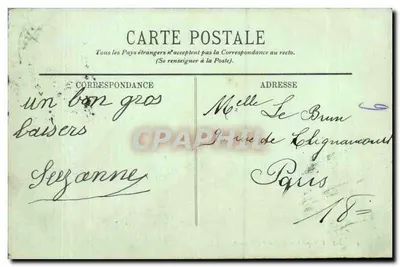 CARTE POSTALE
Tous les Pays étrangers n'acceptent pas la Correspondance au recto.
(Se renseigner à la Poste).
CORRESPONDANCE
ADRESSE
un bon gros
baisers
Suzanne
Melle Le Brun
rue de Clignancourt
Paris
18
CARTE POSTALE